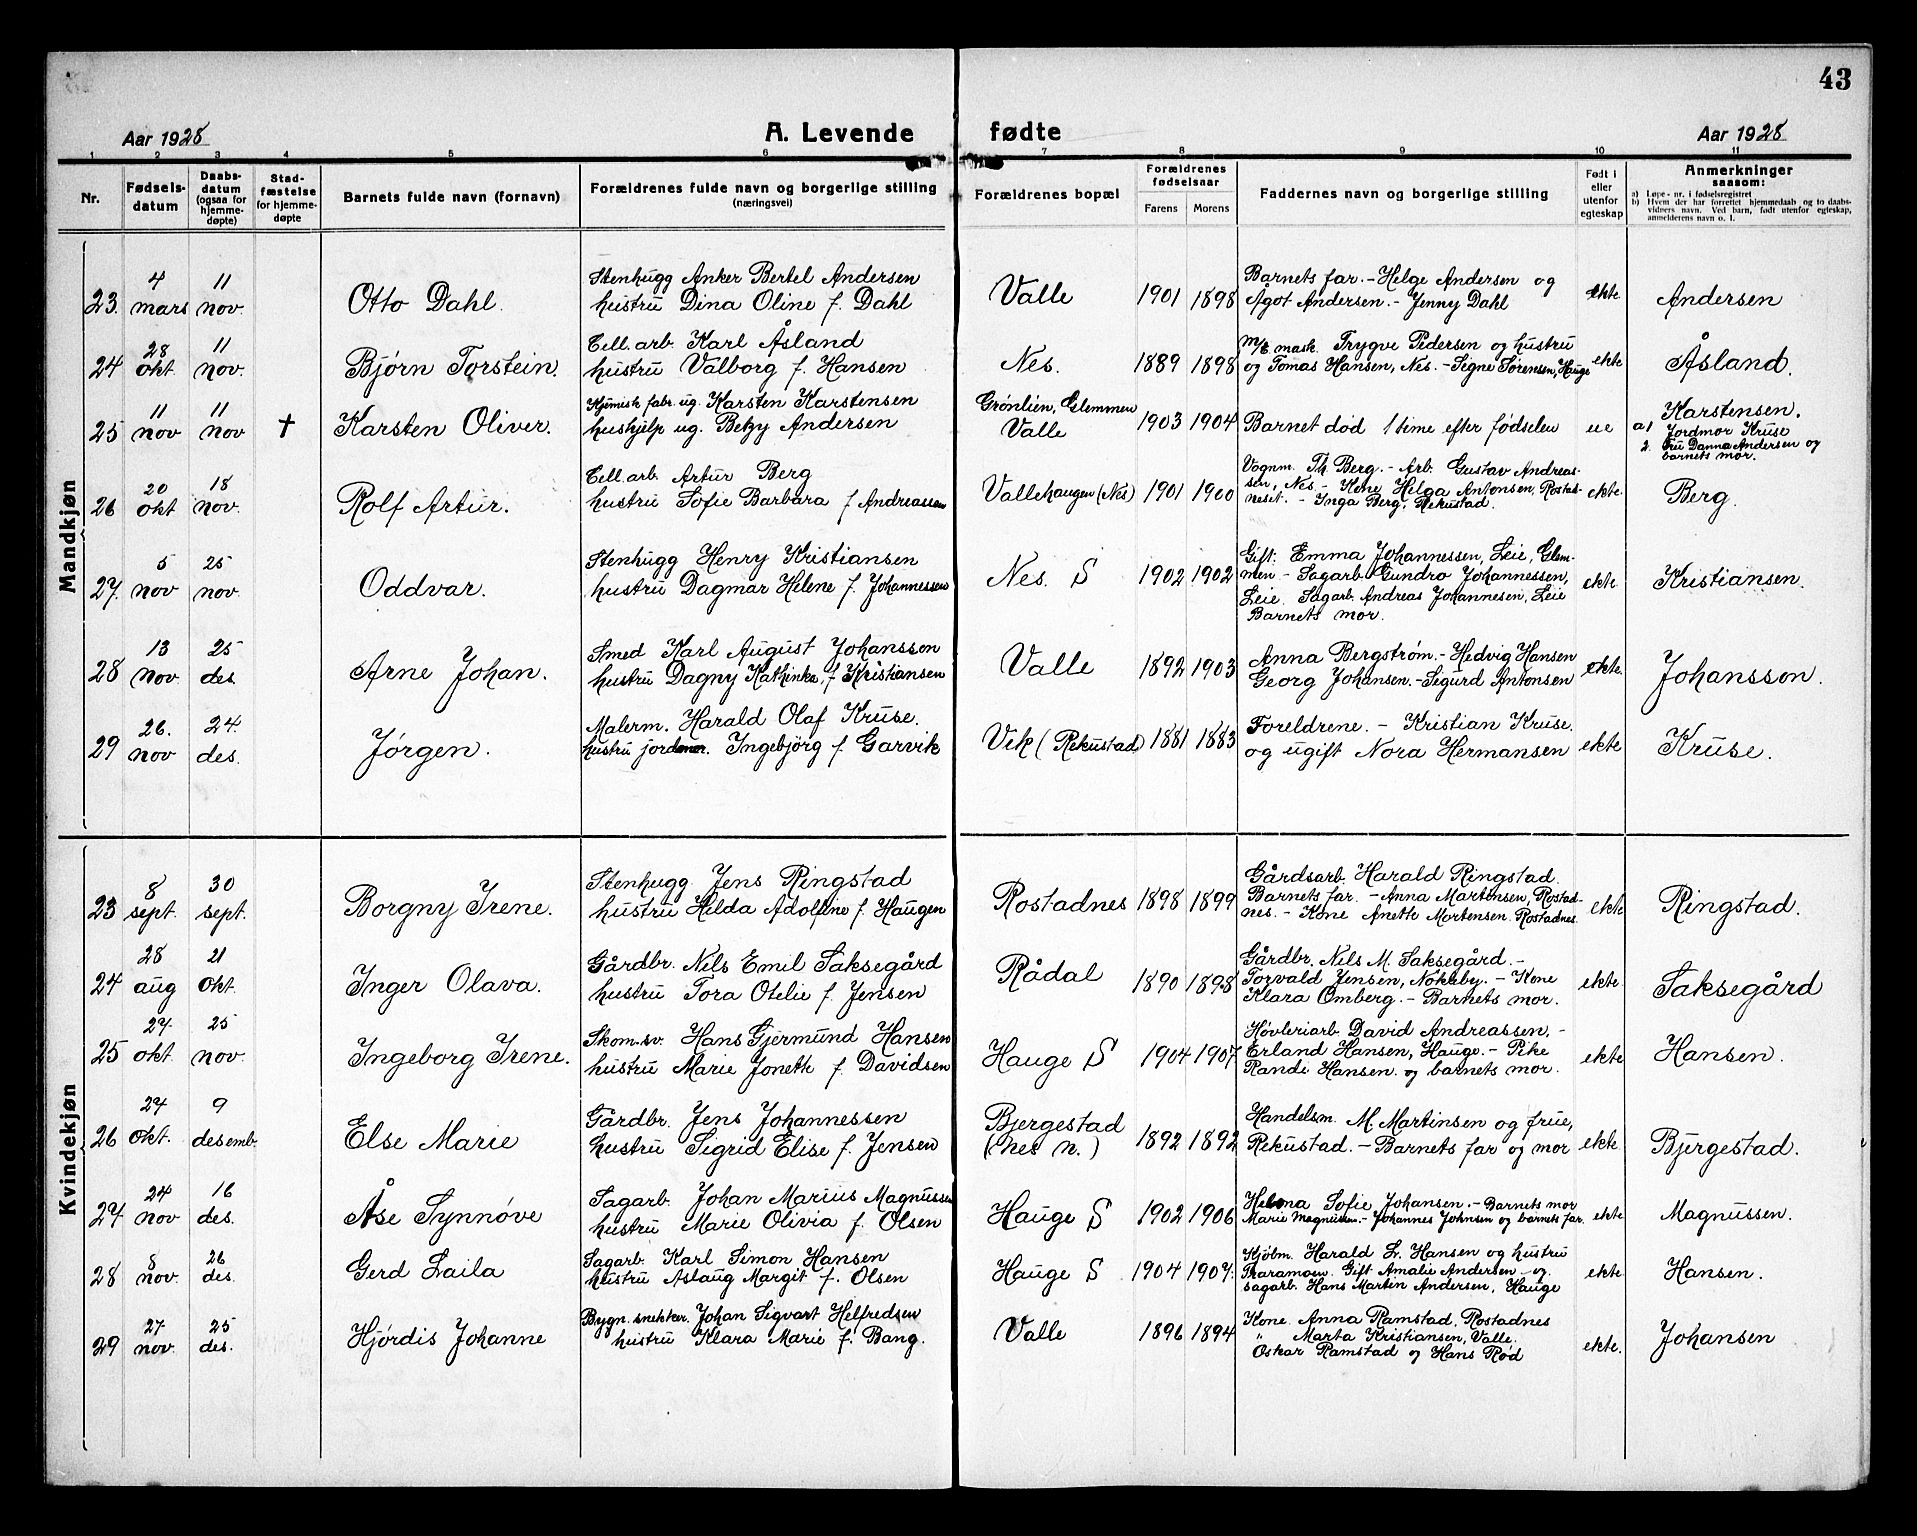 43
Aar 1928 A. Levende fødte Aar 1928
1 2 3 4 5 6 7 8 9 10 11
Nr. Fødsels-datum Daabs-datum (ogsaa for hjemme-døpte) Stad-fæstelse for hjemme-døpte Barnets fulde navn (fornavn) Forældrenes fulde navn og borgerlige stilling (næringsvei) Forældrenes bopæl Forældrenes fødselsaar Farens Morens Faddernes navn og borgerlige stilling Født i eller utenfor egteskap Anmerkninger saasom:
a) Løpe-nr. i fødselsregistret
b) Hvem der har forrettet hjemmedaab og to daabs-vidners navn. Ved barn, født utenfor egteskap, anmelderens navn o. l.
Mandkjøn
23. 4 mars 11 nov. Otto Dahl. Stenhugg Anker Bertel Andersen
hustru Dina Oline f. Dahl Valle 1901 1898 Barnets far. - Helge Andersen og
Ågot Andersen. - Jenny Dahl ekte Andersen
24 28 okt 11 nov. Bjørn Torstein. Cell. arb. Karl Åsland
hustru Valborg f. Hansen Nes. 1889 1898 m/t. mask. Trygve Pedersen og hustru
og Tomas Hansen, Nes. - Signe Sørensen, Hauge ekte Åsland.
25 11 nov 11 nov † Karsten Oliver. Kjemisk fabr. ug. Karsten Karstensen
hushjelp ug. Betzy Andersen Grønlien, Glemmen
Valle 1903 1904 Barnet død 1 time efter fødselen ue Karstensen.
a) 1 Jordmor Kruse
2. Fru Danna Andersen og
barnets mor.
26 20 okt 18 nov. Rolf Artur. Cell. arb. Artur Berg
hustru Sofie Barbara f Andreassen Vallehaugen (Nes) 1901 1900 Vognm. Th. Berg. - Arb. Gustav Andreas-
sen, Nes - Kone Helga Antonsen, Rostad-
neset. - Inga Berg, Rekustad. ekte Berg.
27. 5 nov 25 nov. Oddvar. Stenhugg Henry Kristiansen
hustru Dagmar Helene f. Johannessen Nes. S 1902 1902 Gift: Emma Johannessen, Leie, Glem-
men - Sagarb. Gundro Johannessen,
Leie. Sagarb. Andreas Johannesen, Leie
Barnets mor. ekte Kristiansen.
28 13 nov. 25 des. Arne Johan. Smed Karl August Johansson
hustru Dagny Kathinka, f. Kristiansen Valle 1892 1903 Anna Bergstrøm. - Hedvig Hansen
Georg Johansen. - Sigurd Antonsen ekte. Johansson.
29 26. nov 24. des. Jørgen. Malerm. Harald Olaf Kruse.
hustru jordmor. Ingebjörg f. Garvik Vik (Rekustad) 1881 1883 Foreldrene. - Kristian Kruse.
og ugift Nora Hermansen ekte Kruse.
Kvindekjøn
23 8 sept. 30 sept. Borgny Irene. Stenhugg Jens Ringstad
hustru Hilda Adolfine f. Haugen Rostadnes 1898 1899 Gårdsarb. Harald Ringstad.
Barnets far. - Anna Martensen, Rostad-
nes. - Kone Aneth Mortensen. Rostadnes. ekte Ringstad.
24 28 aug 21 okt. Inger Olava. Gårdbr. Nils Emil Saksegård
hustru Tora Otelie f. Jensen Rådal 1890 1898 Gårdbr. Nils M. Saksegård. -
Torvald Jensen, Nokleby. - Kone
Klara Omberg. - Barnets mor. ekte. Saksegård
25 27 okt 25 nov. Ingeborg Irene. Skom.sv. Hans Gjermund Hansen
hustru Marie Joneth f. Davidsen Hauge S 1904 1907 Høvleriarb. David Andreassen. -
Erland Hansen, Hauge. - Pike
Randi Hansen. og barnets mor. ekte Hansen.
26 27 okt. 9 desemb. Else Marie Gårdbr. Jens Johannessen
hustru Sigrid Elise f. Jensen Bjergestad
(nes n.) 1892 1892 Handelsm. M. Martinsen og frue,
Rekustad. - Barnets far og mor ekte Bjergestad.
27 24 nov 16 des. Åse Synnøve Sagarb. Johan Marius Magnussen
hustru Marie Olivia f. Olsen Hauge S 1902 1906 Helena Sofie Johansen. - Barnets mor
Marie Magnussen. - Johannes Johnsen og barnets far. ekte Magnussen.
28 8 nov. 26 des. Gerd Laila Sagarb. Karl Simon Hansen
hustru Aslaug Margit f. Olsen Hauge S 1904 1907. Kjølm. Harald L. Hansen og hustru
Gift Amalie Andersen - og
sagarb. Hans Martin Andersen, Hauge ekte Hansen.
29 27 nov. 25 des. Hjørdis Johanne Bygn. snekker. Johan Sigvart Helfredsen
hustru Klara Marie f. Bang. Valle 1896 1894 Kone. Anna Ramstad, Rostadnes
" Marta Kristiansen, Valle.
Oskar Ramstad og Hans Rød ekte. Johansen